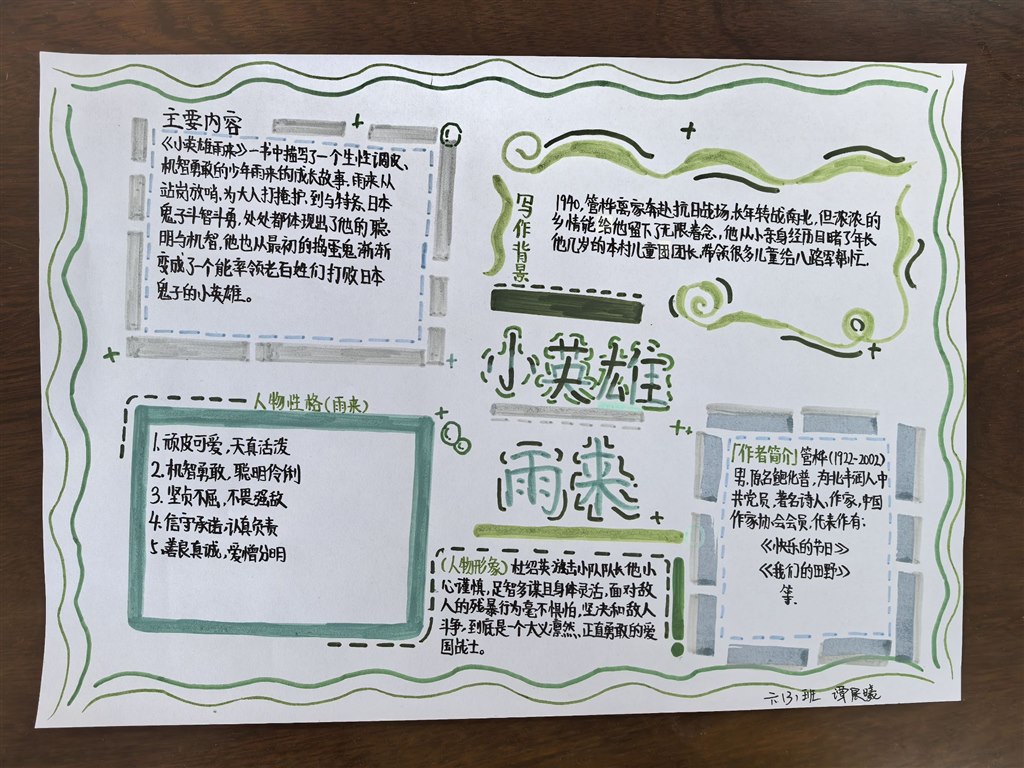 主要内容
《小英雄雨来》一书中描写了一个生性调皮、
机智勇敢的少年雨来的成长故事。雨来从
站岗放哨,为大人打掩护,到与特务、日本
鬼子斗智斗勇,处处都体现出了他的聪
明与机智,他也从最初的捣蛋鬼,渐渐
变成了一个能率领老百姓们打败日本
鬼子的小英雄。
写作背景
1940,管桦离家奔赴抗日战场,长年转战南北,但浓浓的
乡情能给他留下无限眷念、他从小亲身经历目睹了年长
他几岁的本村儿童团团长,带领很多儿童给八路军帮忙.
小英雄
雨来
人物性格(雨来)
1.顽皮可爱,天真活泼
2.机智勇敢,聪明伶俐
3.坚贞不屈,不畏强敌
4.信守承诺,认真负责
5.善良真诚,爱憎分明
(人物形象)杜绍英游击小队队长他小
心谨慎,足智多谋且身体灵活,面对敌
人的残暴行为毫不惧怕,坚决和敌人
斗争,到底是一个大义凛然、正直勇敢的爱
国战士。
「作者简介」管桦(1922-2002)
男,原名鲍化普,为北丰润人,中
共党员,著名诗人,作家,中国
作家协会会员,代表作有:
《快乐的节日》
《我们的田野》
等.
六(3)班 谭晨曦